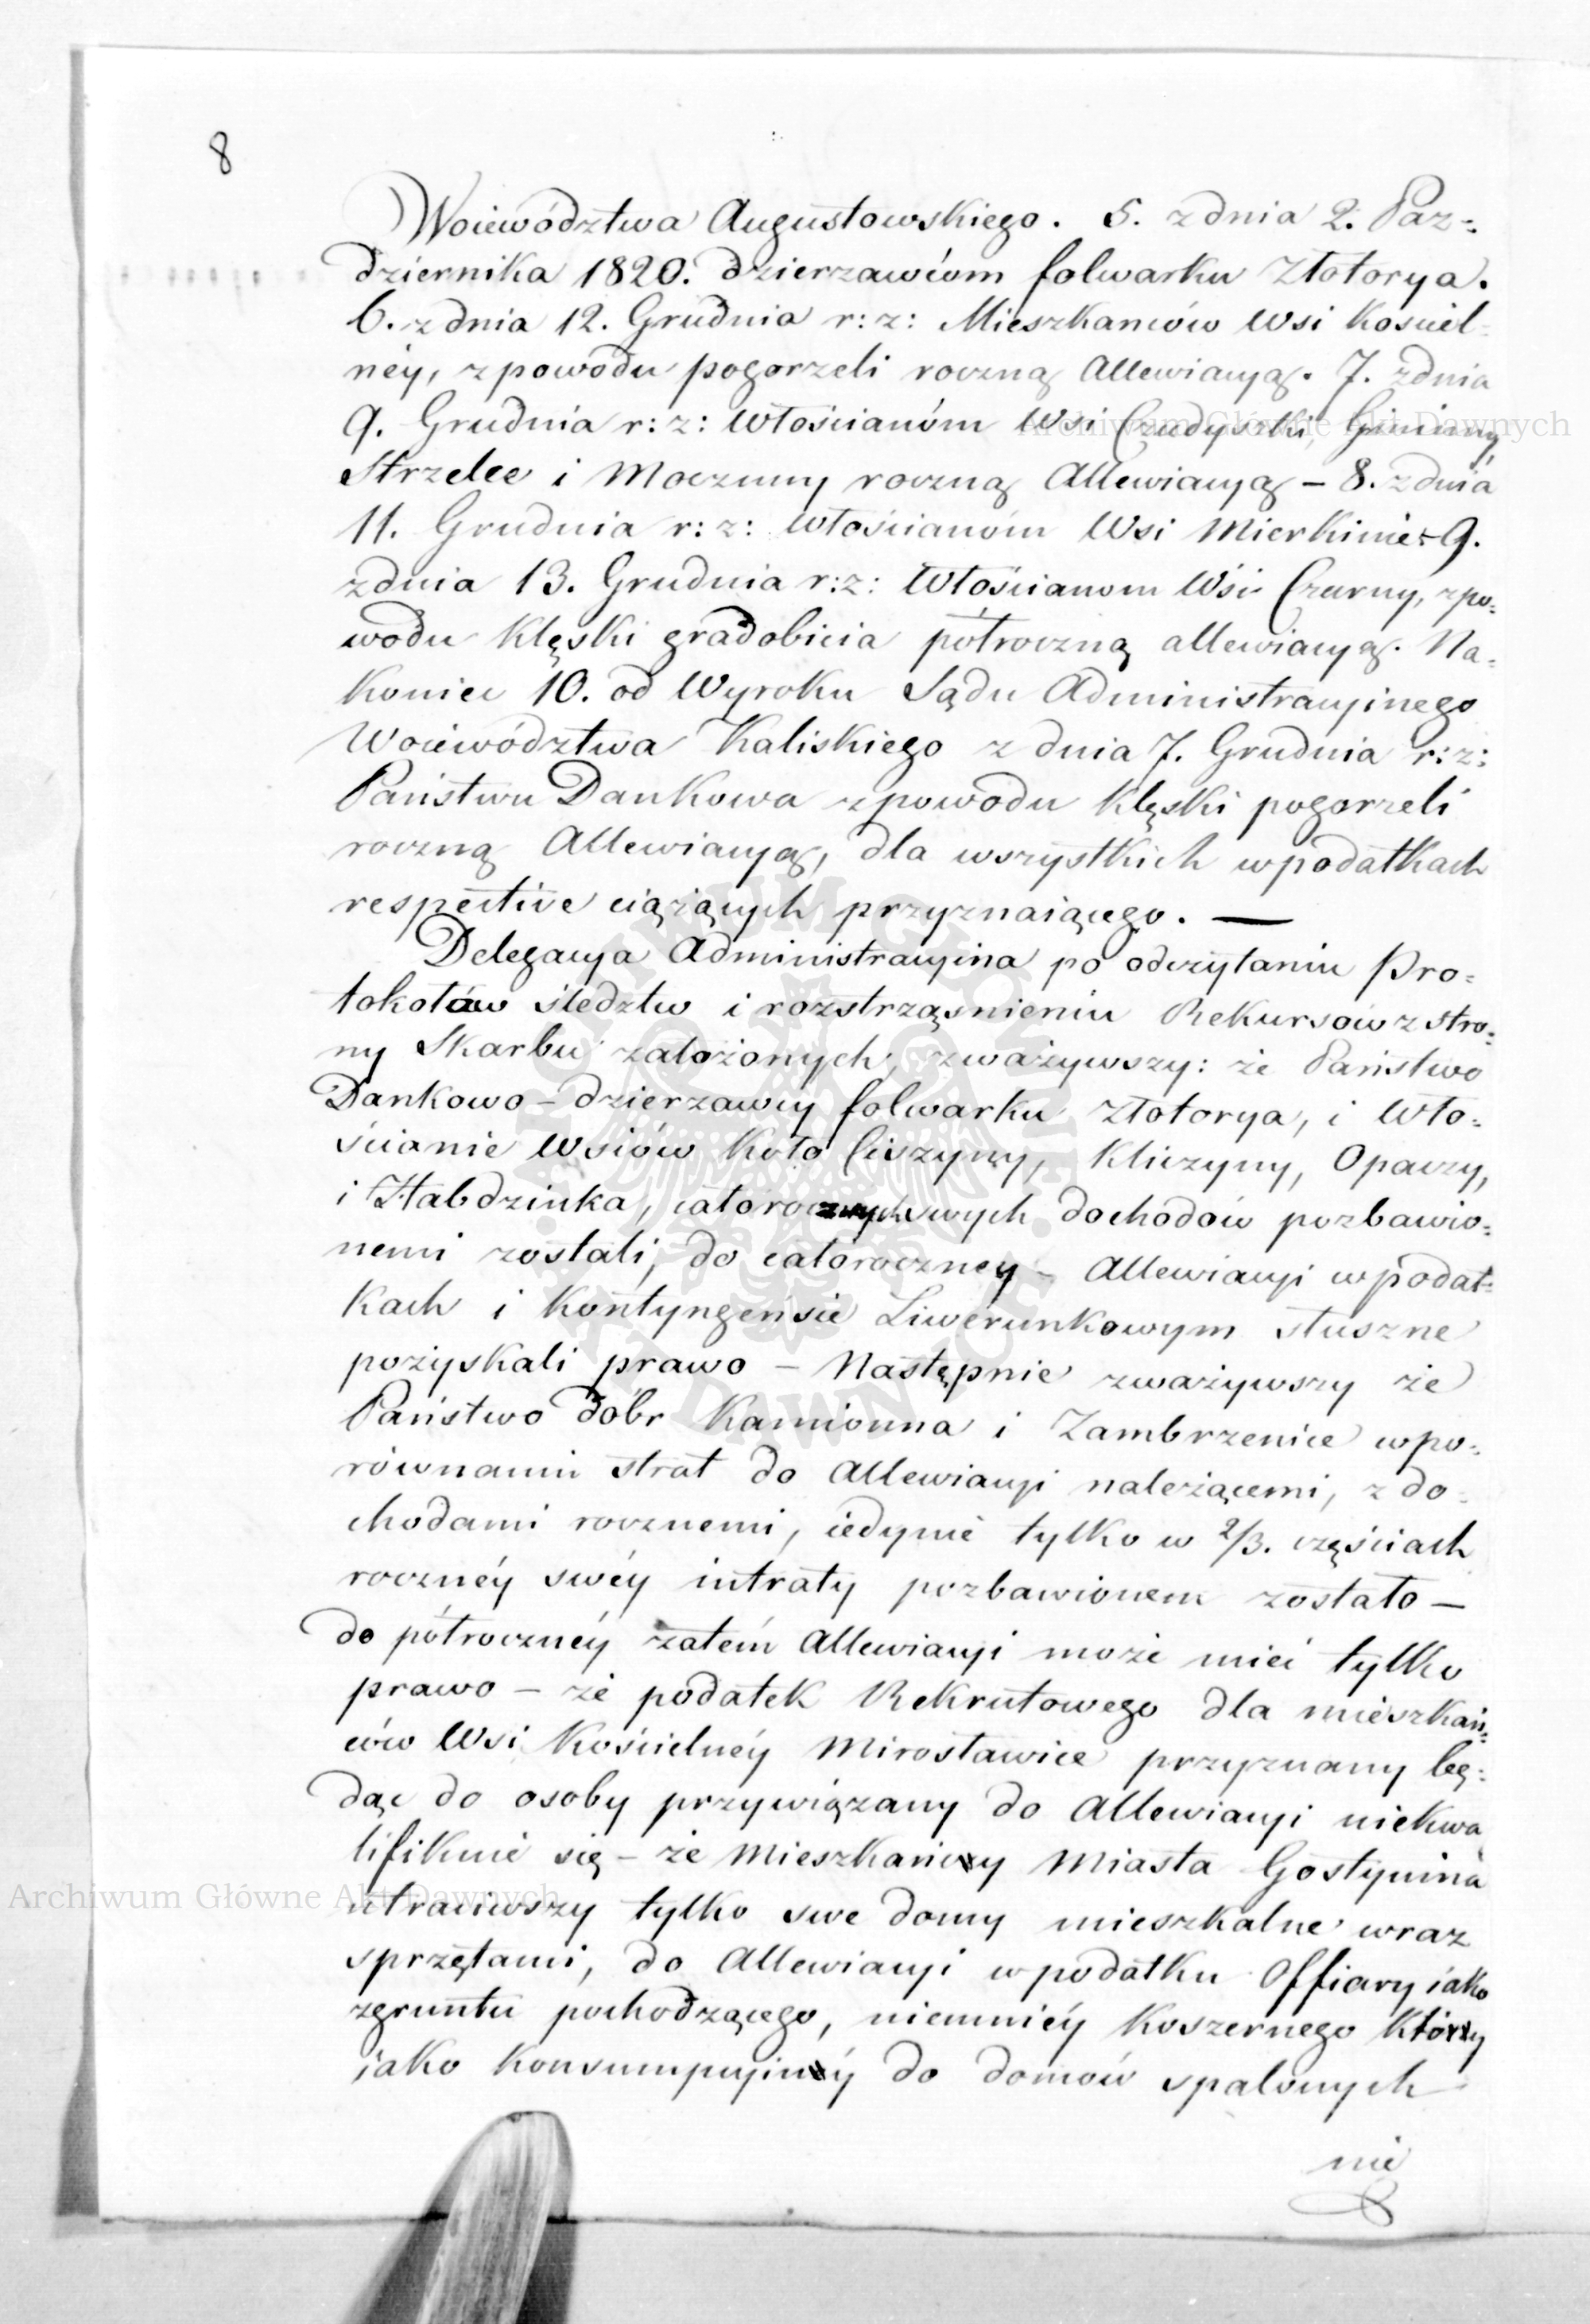 8
Woiewództwa Augustowskiego. 5. z dnia 2. Paz-
dziernika 1820. dzierzawcom folwarku Złotorya.
6. z dnia 12. Grudnia r: z: Mieszkanców Wsi Kosciel-
ney, z powodu pogorzeli roczną Allewiacyą. 7. z dnia
9. Grudnia r: z: Włościanóm Wsi Czudyszki, Gminy
Strzelce i Moczumy roczną Allewiacyą – 8. z dnia
11. Grudnia r: z: Włościanóm Wsi Mierkinie – 9.
z dnia 13. Grudnia r: z: Włościanom Wsi Czarny, z po-
wodu Klęski gradobicia półroczną allewiacyą. Na-
koniec 10. od Wyroku Sądu Administracyinego
Woiewództwa Kaliskiego z dnia 7. Grudnia r: z:
Państwu Dankowa z powodu Klęski pogorzeli
roczną Allewiacyą, dla wszystkich w podatkach
respective ciążących przyznaiącego. —
Delegacya Administracyina po odczytaniu Pro-
tokołów śledztw i rozstrząsnieniu Rekursów z stro-
ny Skarbu założonych, zważywszy: że Państwo
Dankowo – dzierzawcy folwarku Złotorya, i Wło-
ścianie Wsiów Koło Ciszyny, Kliczyny, Opaczy,
i Habdzinka, całorocznych swych dochodów pozbawio-
nemi zostali, do całoroczney – Allewiacyi w podat-
kach i Kontyngensie Liwerunkowym słuszne
pozyskali prawo – Następnie zważywszy że
Państwo dóbr Kamionna i Zambrzenice w po-
równaniu strat do Allewiacyi należącemi, z do-
chodami rocznemi, iedynie tylko w 2/3. częściach
rocznéy swéy intraty pozbawionem zostało —
do półrocznéy zatém Allewiacyi może mieć tylko
prawo – że podatek Rekrutowego dla mieszkań-
ców Wsi Kościelnéy Mirosławice przyznany bę-
dąc do osoby przywiązany do Allewiacyi niekwa
lifikuie się – że Mieszkańcy Miasta Gostynina
utraciwszy tylko swe domy mieszkalne wraz
sprzętami, do Allewiacyi w podatku Offiary iako
z gruntu pochodzącego, niemniéy Koszernego Który
iako Konsumpcyiny do domów spalonych
nie
Archiwum Główne Akt Dawnych
Archiwum Główne Akt Dawnych
ARCHIWUM GŁÓWNE AKT DAWNYCH